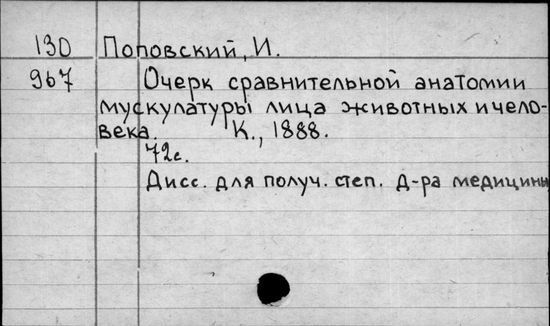 130 Поповский, И.
967 Очерк сравнительной анатомии
мускулатуры лица животных и чело-
века. К., 1888.
72с.
Дисс. для получ. степ. д-ра медицины